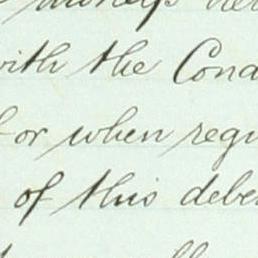 moneys
with the Cond
for when requ
of this debe